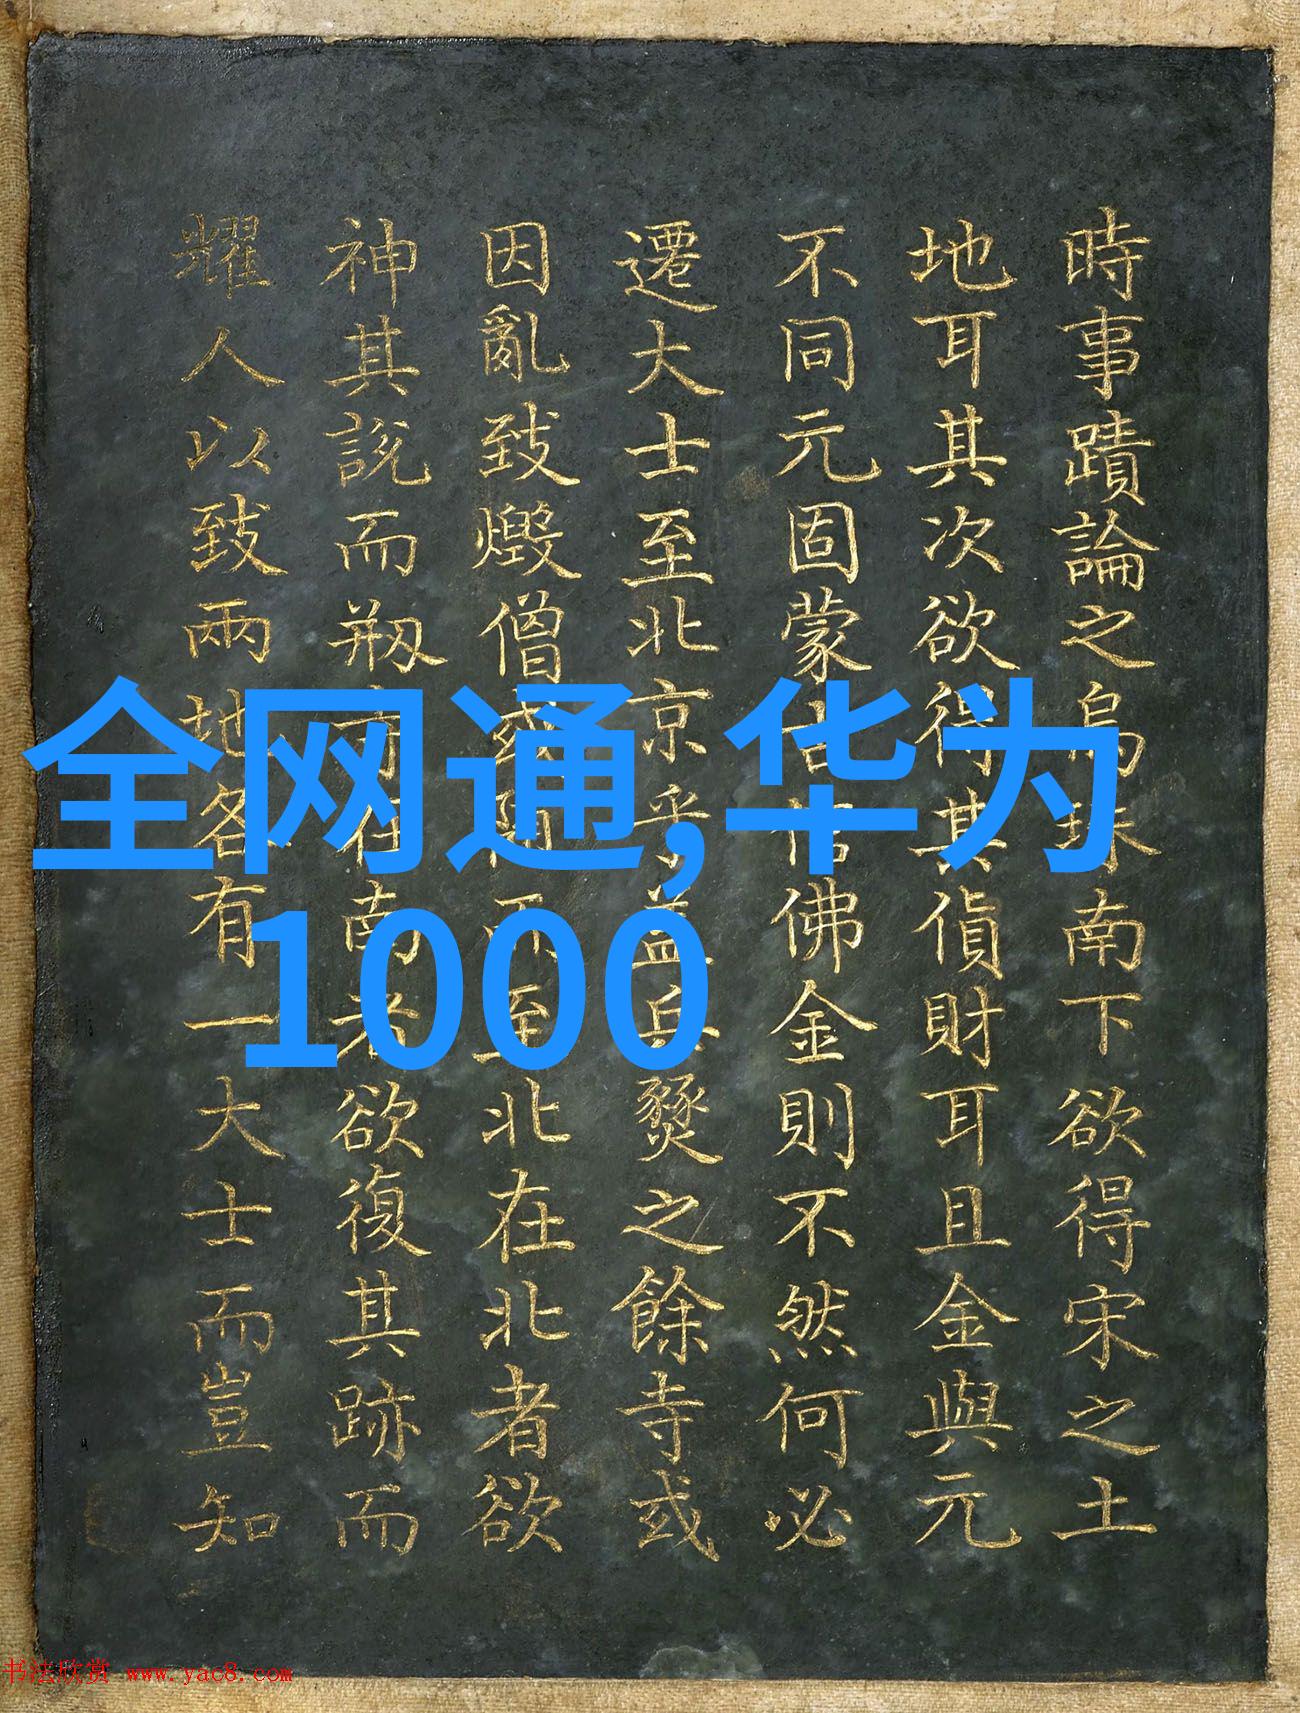 時事蹟論之烏珠南下欲得宋之土
地耳其次欲得其貨財耳且金與元
不同元固蒙古信佛金則不然何必
遷大士至北京乎並兵燹之餘寺或
因亂致燬僧或而至北在北者欲
神其說而刱在南者欲復其跡而
耀人以致兩地各有一大士而豈知
全网通,华为
1000
书法欣赏 www.yac8.com